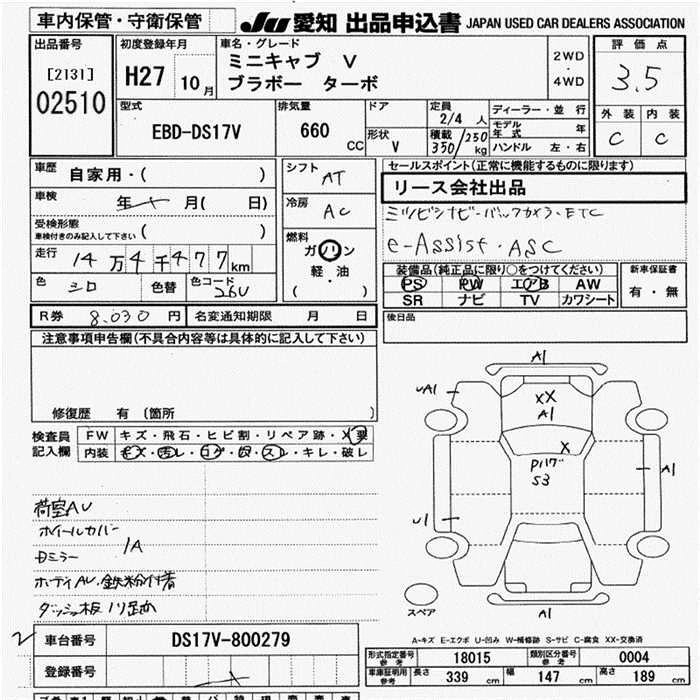 車内保管・守衛保管
JU 愛知 出品申込書 JAPAN USED CAR DEALERS ASSOCIATION
出品番号
[2131]
02510
初度登録年月
H27 10月
車名・グレード
ミニキャブ V
ブラボー ターボ
2WD
・
4WD
評価点
3.5
外装 内装
C C
型式
EBD-DS17V
排気量
660 CC
ドア
形状 V
定員 2/4 人
積載 350/250 kg
ディーラー・並行
モデル年式 年
ハンドル 左・右
車歴 自家用・( )
車検 年 月( 日)
受検形態
車検付きのみ記入して下さい ( )
走行 14万4千477km
色 シロ 色替 色コード 26U
シフト AT
冷房 AC
燃料
ガソリン
軽・油
( )
セールスポイント(正常に機能するものに限ります)
リース会社出品
ミツビシナビ・バックカメラ・ETC
e-Assist・ASC
装備品(純正品に限り○をつけてください)
PS PW エアB AW
SR ナビ TV カワシート
新車保証書
有・無
R券 8,030円 名変通知期限 月 日
後日品
注意事項申告欄(不具合内容等は具体的に記入して下さい)
修復歴 有(箇所 )
検査員記入欄
FW キズ・飛石・ヒビ割・リペア跡・X要
内装 キズ・汚レ・コゲ・穴・スレ・キレ・破レ
荷室AU
ホイールカバー
Dミラー 1A
ボディAU・鉄粉付着
ダッシュ板ノリ跡
A1
UA1
XX
A1
X
P117"
S3
A1
U1
A1
スペア
A-キズ E-エクボ U-凹み W-補修跡 S-サビ C-腐食 XX-交換済
2
車台番号 DS17V-800279
登録番号
形式指定番号 参考 18015 類別区分番号 参考 0004
車庫証明用 参考 長さ 339 cm 幅 147 cm 高さ 189 cm